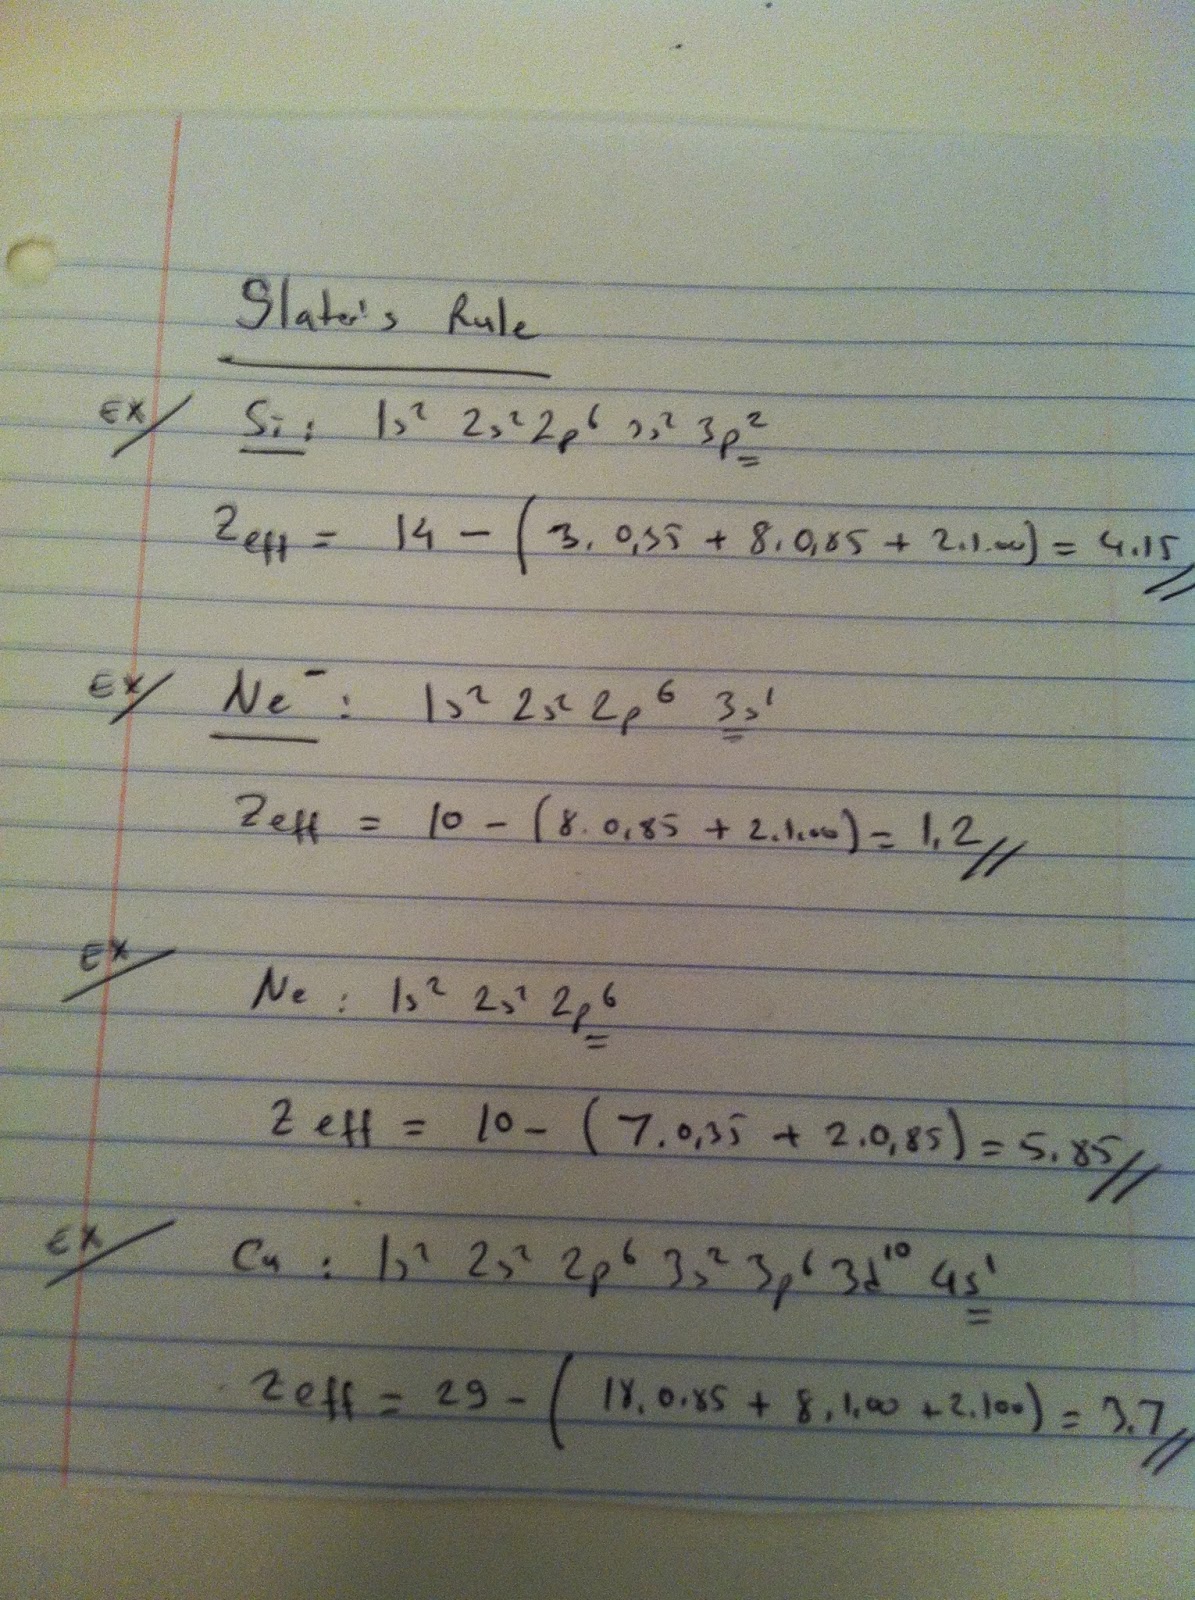 Slater's Rule
EX/ Si: 1s² 2s² 2p⁶ 3s² 3p²
Zeff = 14 - (3. 0,35 + 8. 0,85 + 2.1.00) = 4.15//
EX/ Ne⁻: 1s² 2s² 2p⁶ 3s¹
Zeff = 10 - (8. 0,85 + 2.1.00) = 1,2//
EX/ Ne: 1s² 2s² 2p⁶
Zeff = 10 - (7.0,35 + 2.0,85) = 5.85//
EX/ Cu: 1s² 2s² 2p⁶ 3s² 3p⁶ 3d¹⁰ 4s¹
Zeff = 29 - (18.0.85 + 8.1.00 + 2.100) = 3.7//